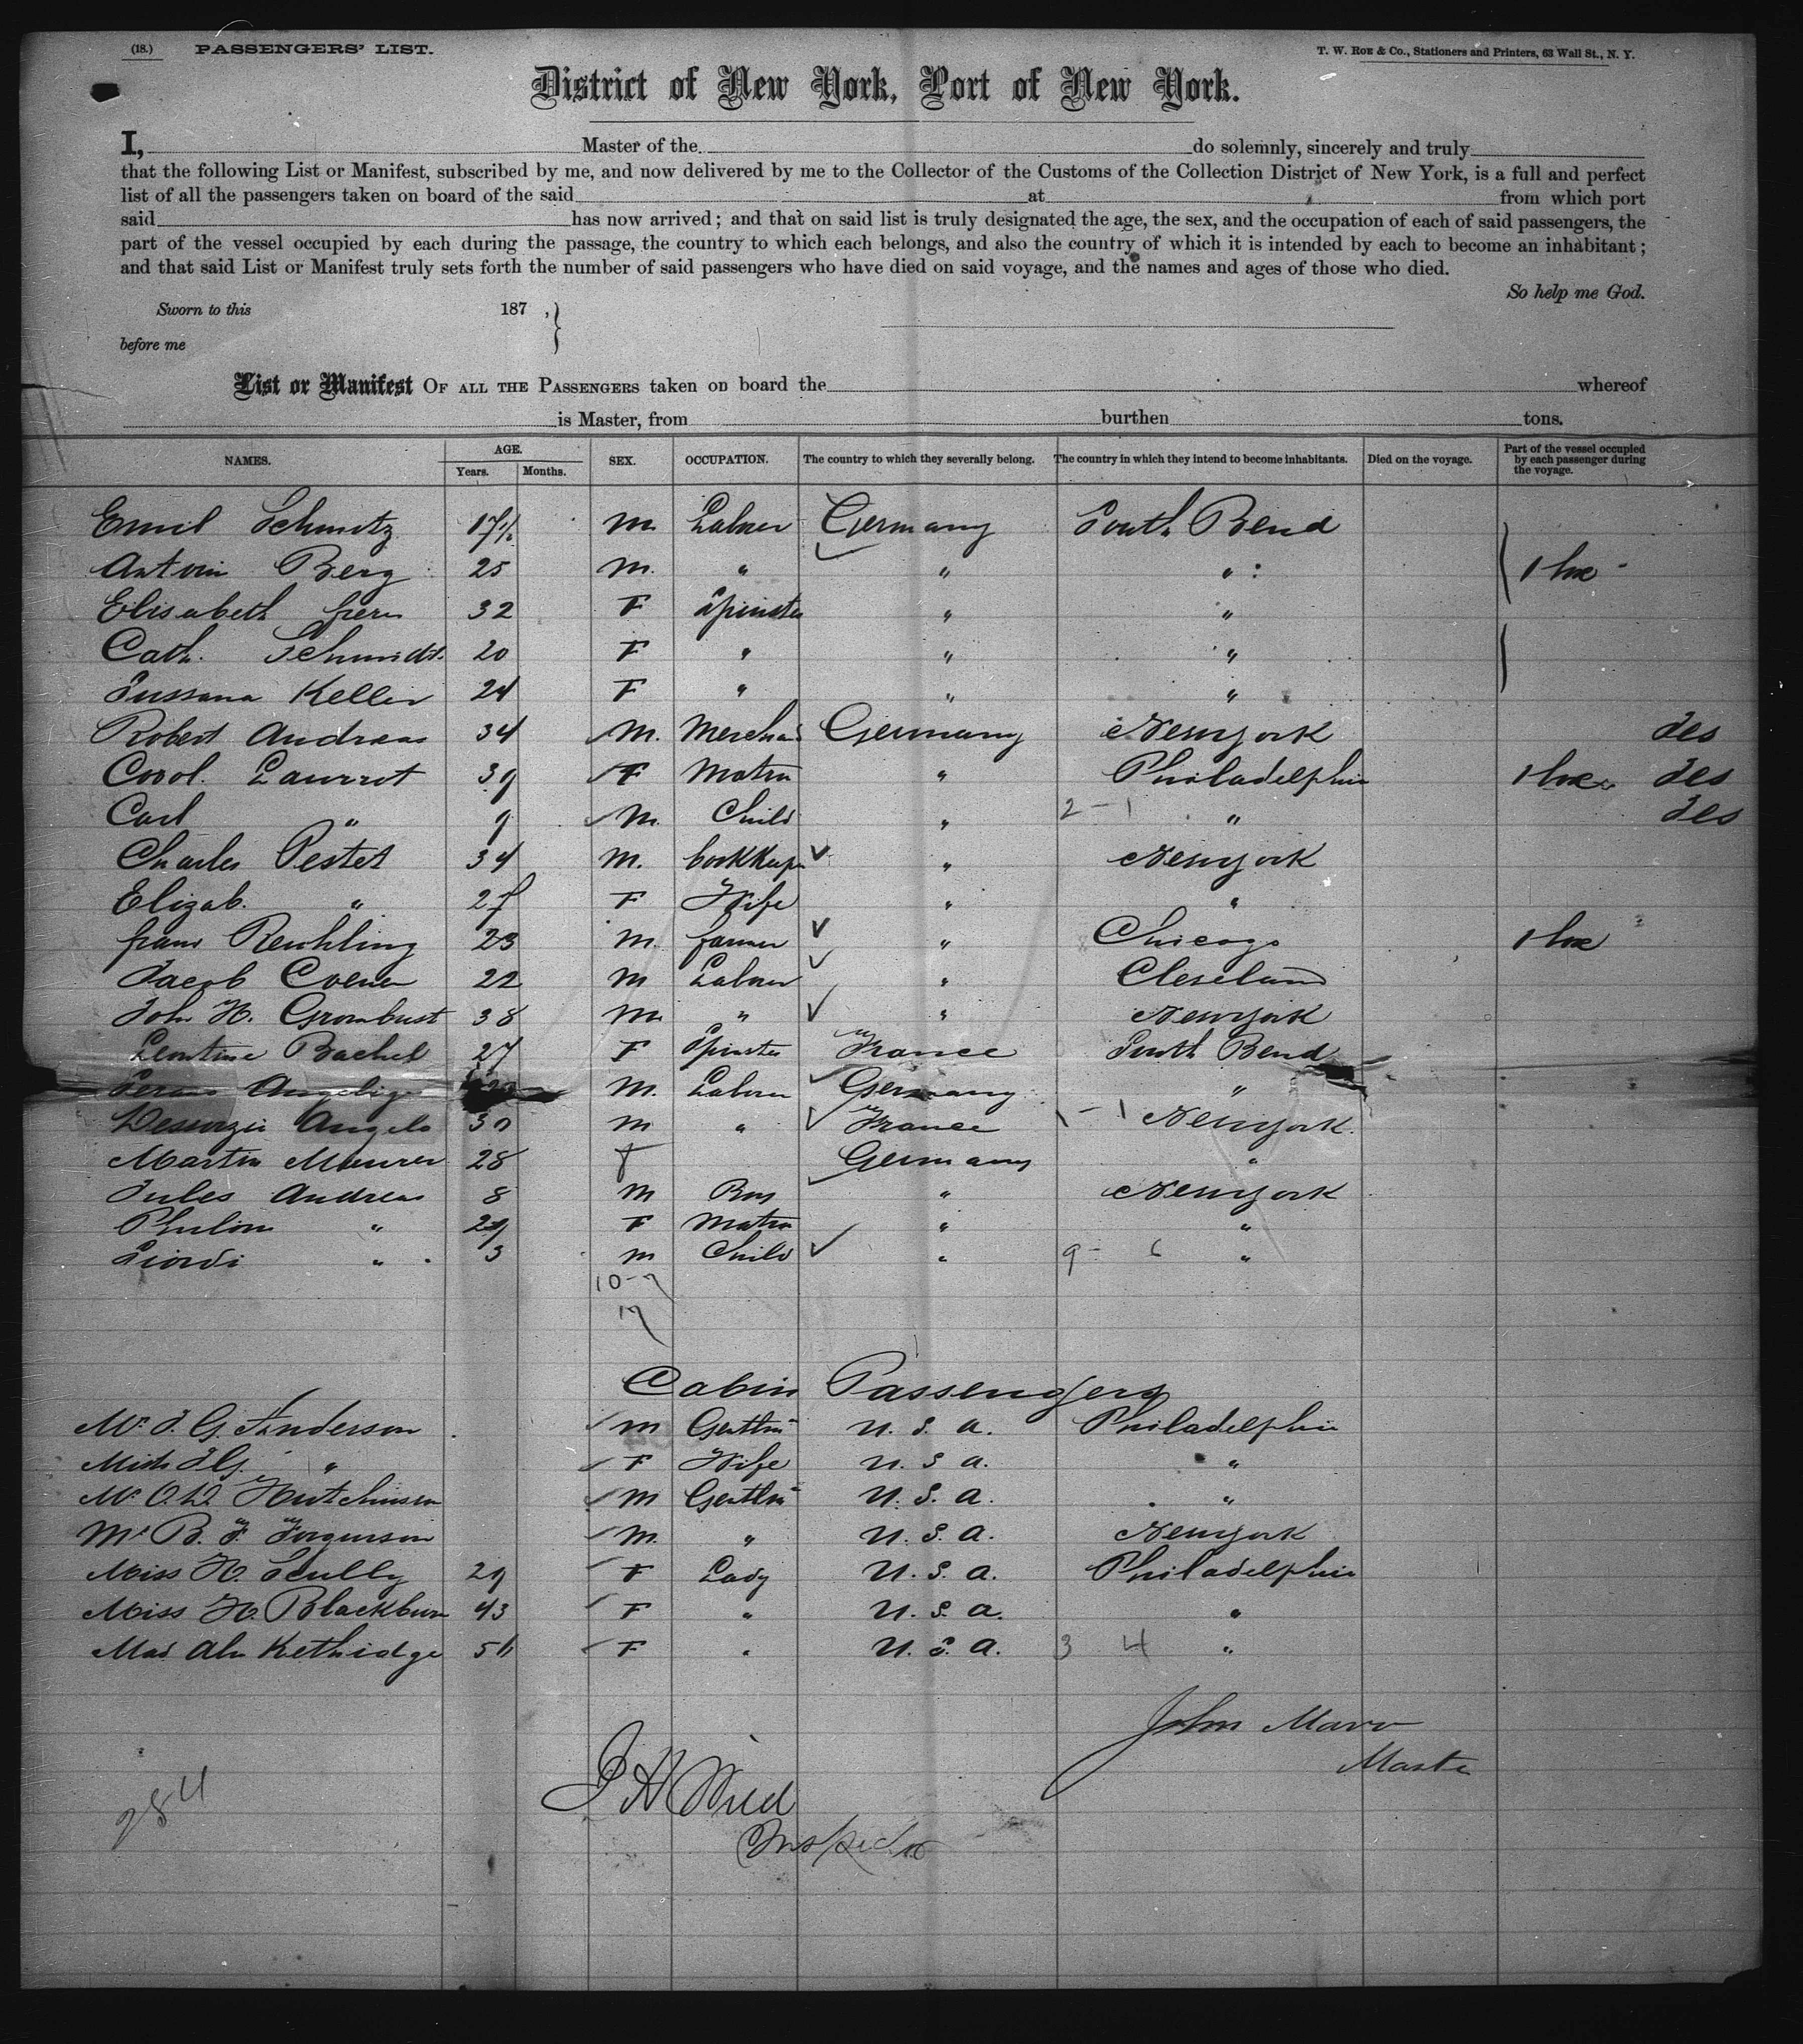 (18.) PASSENGERS' LIST. T. W. ROE & Co., Stationers and Printers, 63 Wall St., N. Y.
District of New York, Port of New York.
I, Master of the do solemnly, sincerely and truly
that the following List or Manifest, subscribed by me, and now delivered by me to the Collector of the Customs of the Collection District of New York, is a full and perfect
list of all the passengers taken on board of the said at from which port
said has now arrived; and that on said list is truly designated the age, the sex, and the occupation of each of said passengers, the
part of the vessel occupied by each during the passage, the country to which each belongs, and also the country of which it is intended by each to become an inhabitant;
and that said List or Manifest truly sets forth the number of said passengers who have died on said voyage, and the names and ages of those who died.
So help me God.
Sworn to this 187 ,
before me
List or Manifest OF ALL THE PASSENGERS taken on board the whereof
is Master, from burthen tons.
NAMES. AGE. Years. Months. SEX. OCCUPATION. The country to which they severally belong. The country in which they intend to become inhabitants. Died on the voyage. Part of the vessel occupied by each passenger during the voyage.
Emil Schmitz 17½ M. Labner Germany South Bend
Antoin Berg 25 M. " " " 1 box
Elisabeth 32 F Spinster " "
Cath. Schmidt 20 F " " "
Sussana Keller 24 F " " "
Robert Andreas 34 M. Merchad Germany Newyork des
Corol. Laurrot 39 F Matrn " Philadelphia 1 box des
Carl " 9 M. Child " 2 - 1 " des
Charles Pestet 34 M. bookkeepr " Newyork
Elizab. " 27 F Wife " "
franz Reichling 23 M. farmer " Chicago 1 box
Jacob Coener 22 M Labner " Cleveland
John H. Grombust 38 M. " " Newyork
Leontine Bachel 27 F Spinster France South Bend
M. Labner Germany "
Angelo 30 M " France 1 - 1 Newyork.
Martin Maurer 28 Germany "
Jules Andreas 8 M Boy " Newyork
" 29 F Matrn " "
" 3 M Child " 9 - 6 "
10-7
17
Cabin Passengers
Mr. J. G. Anderson M Gentlm U. S. A. Philadelphia
" F Wife U. S. A. "
Mr. O. D. Hutchinson M Gentlm U. S. A. "
Mr. B. F. Forgurson M. " U. S. A. Newyork
Miss H. Scully 29 F Lady U. S. A. Philadelphia
Miss H. Blackburn 43 F " U. S. A. "
Mad Kethidge F " U. S. A. 3 4 "
John Marr
Master
J H Wild
Inspector
284